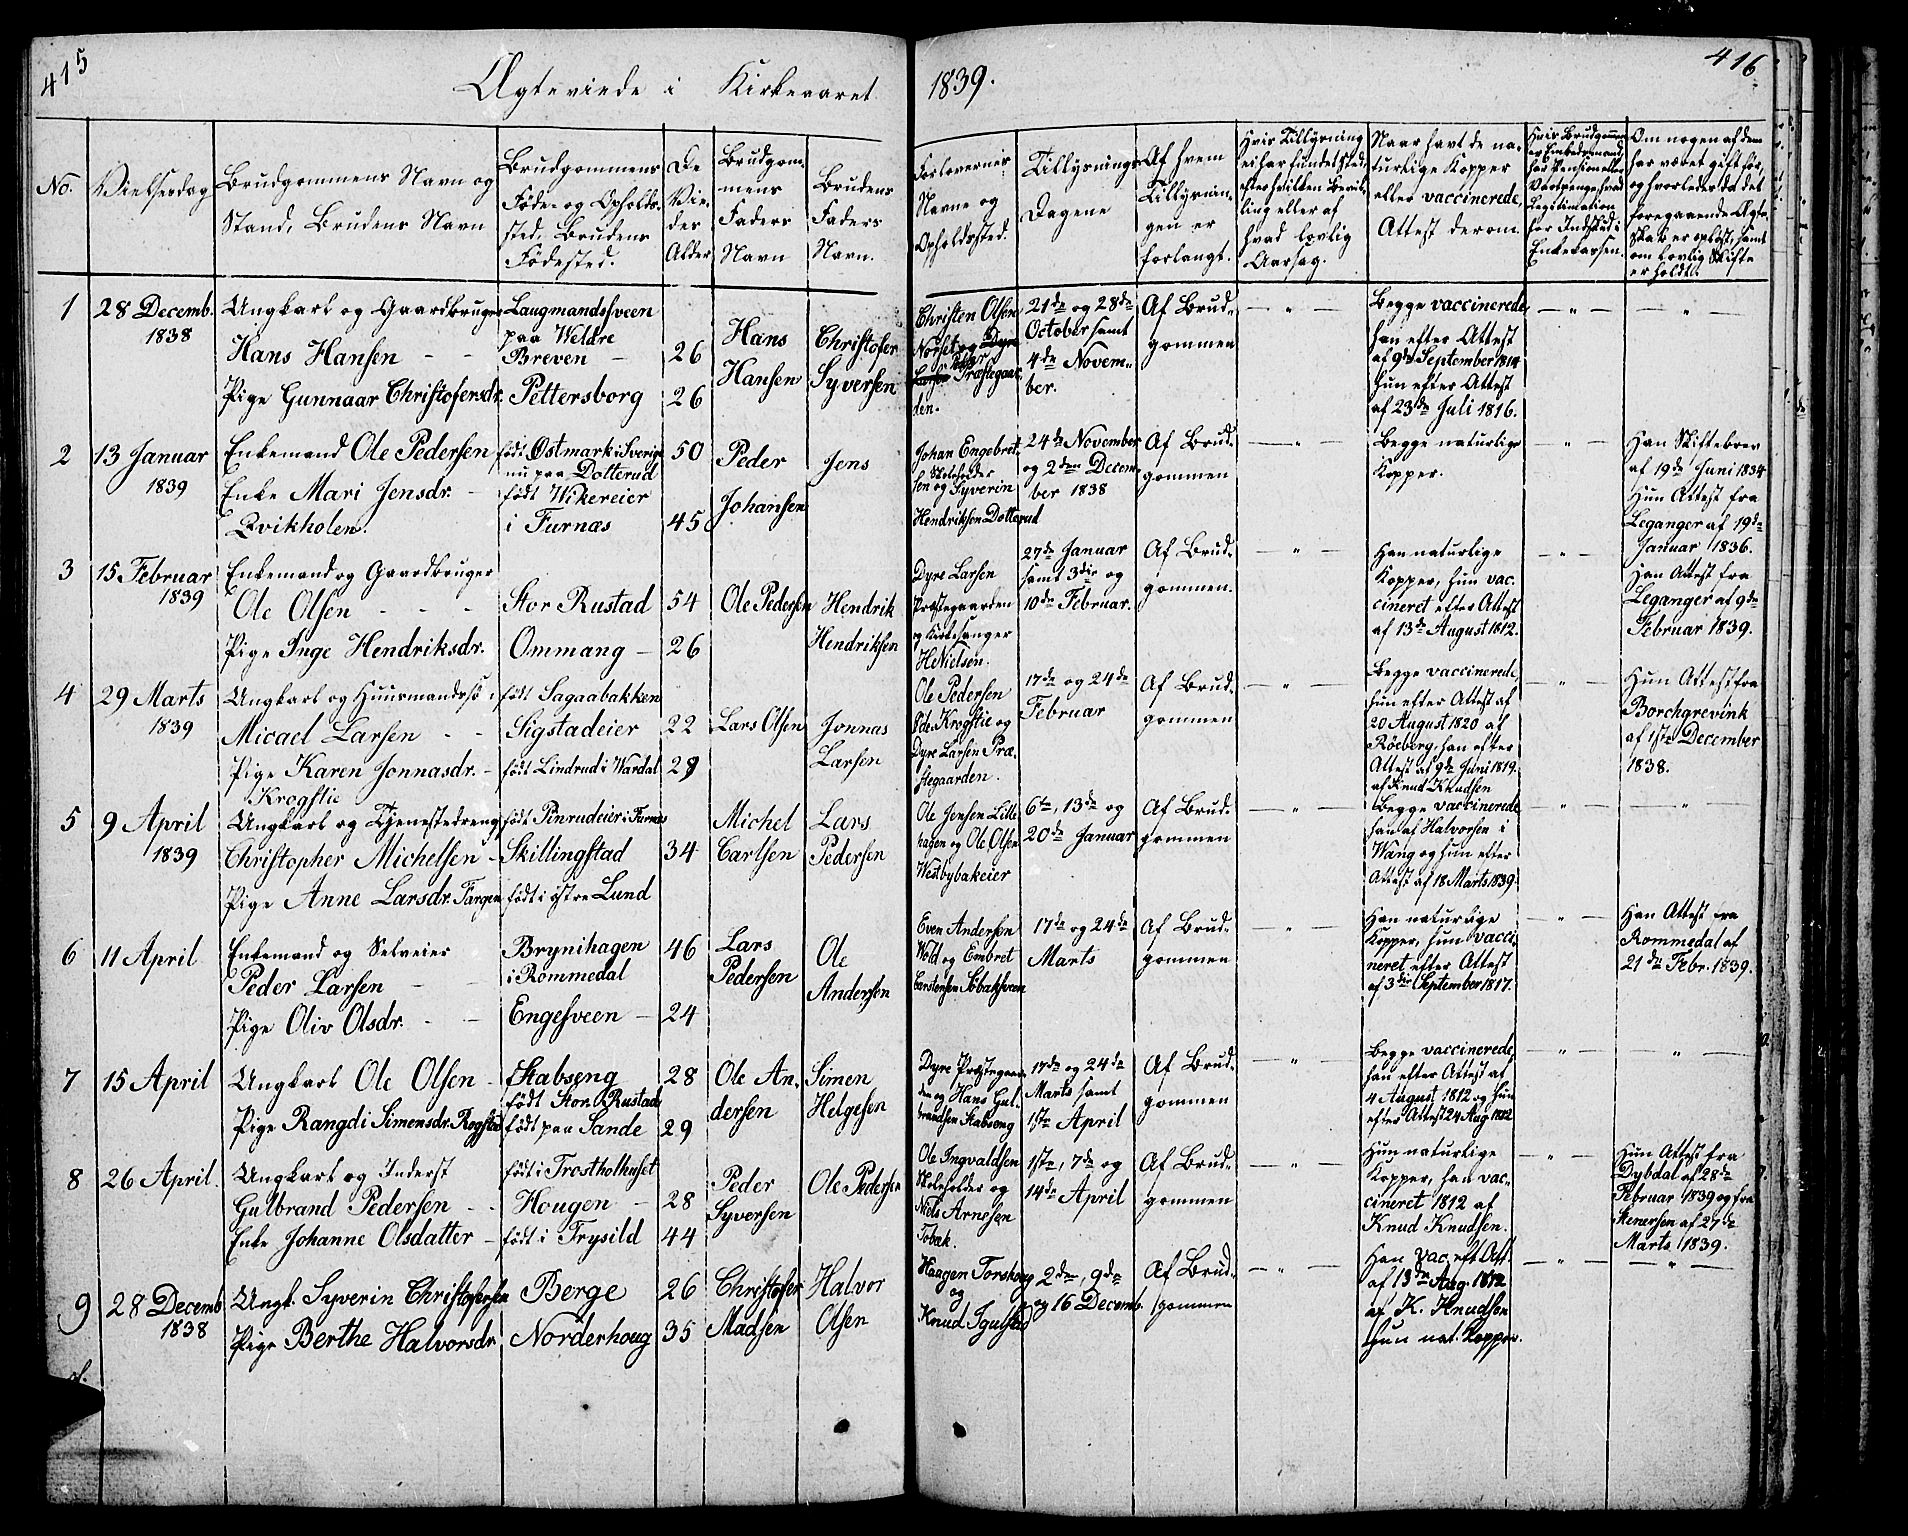 415
Ægteviede i Kirkeaaret
1839.
416
No.
Vielsesdag
Brudgommens Navn og
Stand, Brudens Navn
Brudgommens
Føde- og Opholds-
sted, Brudens
Fødested.
De
Vie-
des
Alder
Brudgom-
mens
Faders
Navn
Brudens
Faders
Navn.
Forlovernes
Navne og
Opholdssted.
Tillysnings
Dagene
Af hvem
Tillysnin-
gen er
forlangt.
Hvis Tillysning
ei har fundet Sted,
efter hvilken Bevil-
ling eller af
hvad lovlig
Aarsag.
Naar havt de na-
turlige Kopper
eller vaccinerede,
Attest derom.
Hvis Brudgommen
er Embedsmand,
har Pension eller
Vartpenge, hvad
Legitimation
for Indskud i
Enkekassen.
Om nogen af dem
har været gift før,
og hvorledes da det
foregaaende Ægte-
skab er opløst, samt
om lovlig Skifte
er holdt.
1
28 Decemb.
1838
Ungkarl og Gaardbruger
Hans Hansen
Pige Gunnaar Christofersdr.
Laugmandssveen
paa Weldre
Breven
Pettersborg
26
26
Hans
Hansen
Christofer
Syversen
Christen Olsen
Norset og Dyre
Præstegaar-
den.
21de og 28de
October samt
4de Novem-
ber.
Af Brud-
gommen
Begge vaccinerede,
han efter Attest
af 9de September 1814
hun efter Attest
af 23de Juli 1816.
2
13 Januar
1839
Enkemand Ole Pedersen
Enke Mari Jensdr.
Qvikholen.
født Østmark i Sverige
nu paa Dotterud
født Wikereier
i Furnæs
50
45
Peder
Johansen
Jens
Johan Engebret-
sen Skoleholder
og Syverin
Hendriksen Dotterud
24de November
og 2den Decem-
ber 1838
Af Brud-
gommen
Begge naturlige
Kopper.
Han Skiftebrev
af 19de Juni 1834
Hun Attest fra
Leganger af 19de
Januar 1836.
3
15 Februar
1839
Enkemand og Gaardbruger
Ole Olsen
Pige Inge Hendriksdr.
Stor Rustad
Ommang
54
26
Ole Pedersen
Hendrik
Hendriksen
Dyre Larsen
Præstegaarden
og Kirkesanger
HNielsen.
27de Januar
samt 3die og
10de Februar.
Af Brud-
gommen.
Han naturlige
Kopper, hun vac-
cineret efter Attest
af 13de August 1812.
Han Attest fra
Leganger af 9de
Februar 1839.
4
29 Marts
1839
Ungkarl og Huusmandss.
Micael Larsen
Pige Karen Jonnasdr.
Krogstie
født Sagaabakken
Sigstadeier
født Lindrud i Wardal
22
28
Lars Olsen
Jonnas
Larsen
Ole Pedersen
Krogstie og
Dyre Larsen Præ-
stegaarden.
17de og 24de
Februar
Af Brud-
gommen
Begge vaccinerede,
hun efter Attest af
20 August 1820 af
Röeberg, han efter
Attest af 9de Juni 1819.
af Knud Knudsen
Hun Attest fra
Borchgrevink
af 1ste December
1838.
5
9 April
1839
Ungkarl og Tjenestedreng
Christopher Michelsen
Pige Anne Larsdr. Fangen
født Pinrudeier i Furnæs
Skillingstad
født i østre Lund
34
Michel
Carlsen
Lars
Pedersen
Ole Jensen Lille
hagen og Ole Olsen
Westbybakeier
6te, 13de og
20de Januar
Af Brud-
gommen
Begge vaccinerede,
han af Halvorsen i
Wang og hun efter
Attest af 18 Marts 1839.
6
11 April
Enkemand og Selveier
Peder Larsen
Pige Oliv Olsdr.
Brynihagen
i Rommedal
Engesveen
46
24
Lars
Pedersen
Ole
Andersen
Even Andersen
Wold og Embret
Carstensen Sobaksveen
17de og 24de
Marts
Af Brud-
gommen
Han naturlige
Kopper, hun vacci-
neret efter Attest
af 3die September 1817.
Han Attest fra
Rommedal af
21de Febr. 1839.
7
15 April
Ungkarl Ole Olsen
Pige Rangdi Simensdr. Rogstad
Skabseng
født Stor Rustad
født paa Sande
28
29
Ole An-
dersen
Simen
Helgesen
Dyre Præstegaar-
den og Hans Gul-
brandsen Skabseng
17de og 24de
Marts samt
1ste April
Af Brud-
gommen
Begge vaccinerede,
han efter Attest af
4 August 1812 og hun
efter Attest 24 Aug 1812
8
26 April.
Ungkarl og Inderst
Gulbrand Pedersen
Enke Johanne Olsdatter
født i Frostholhuset
Hougen
født i Trysild
28
44
Peder
Syversen
Ole Pedersen
Ole Ingvaldsen
Skoleholder og
Niels Arnesen
Tobak.
1ste, 7de og
14de April
Af Brud-
gommen
Hun naturlige
Kopper, han vac-
cineret 1812 af
Knud Knudsen.
Hun Attest fra
Dybdal af 28de
Februar 1839 og fra
Stenersen af 27de
Marts 1839.
9
28 Decemb
1838
Ungk. Syverin Christofersen
Pige Berthe Halvorsdr.
Berge
Norderhoug
26
35
Christofer
Madsen
Halvor
Olsen
Haagen Torshoug
og
Knud Igulstad
2den, 9de
og 16 Decemb.
Af Brud-
gommen
Han vac. eft Att.
af 13de Aug. 1812
af K. Knudsen
Hun nat. Kopper.